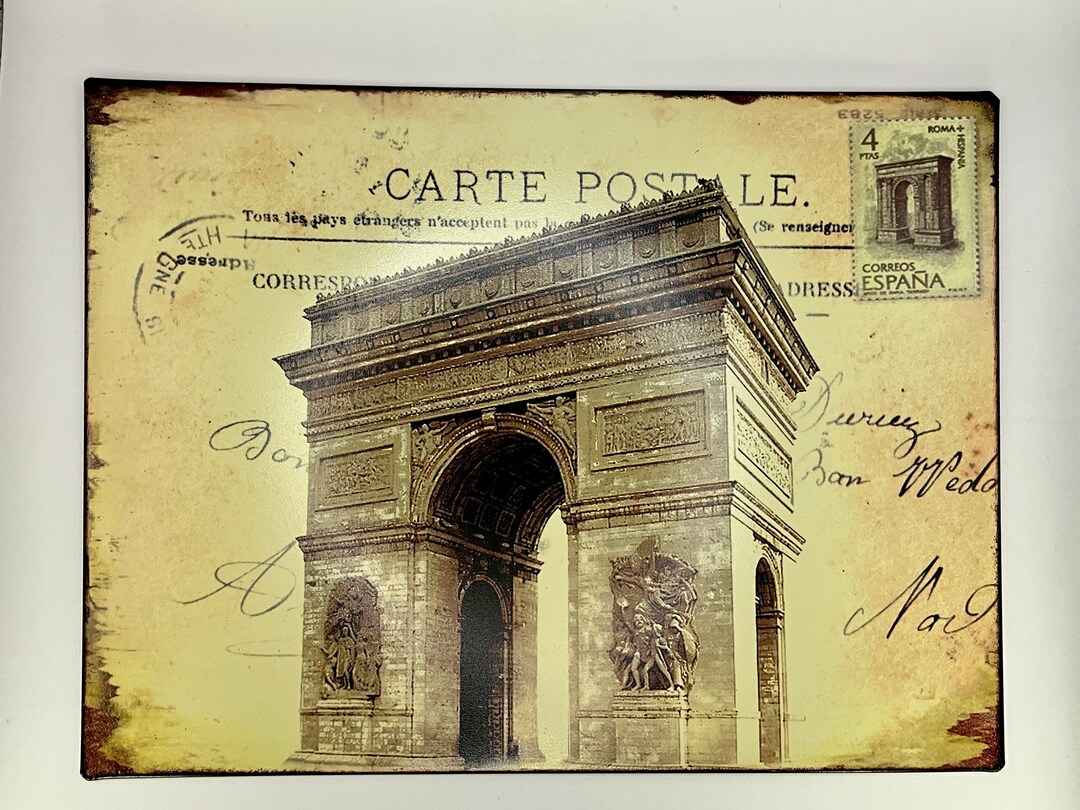 CARTE POSTALE.
Tous les pays étrangers n'acceptent pas la
(Se renseigner
CORRESPO
DRESS
Adresse
HTE
GNE
4
PTAS
ROMA+
HISPANIA
CORREOS
ESPAÑA
5283
Bon
A
Duriez
Ban Wedd
Nod